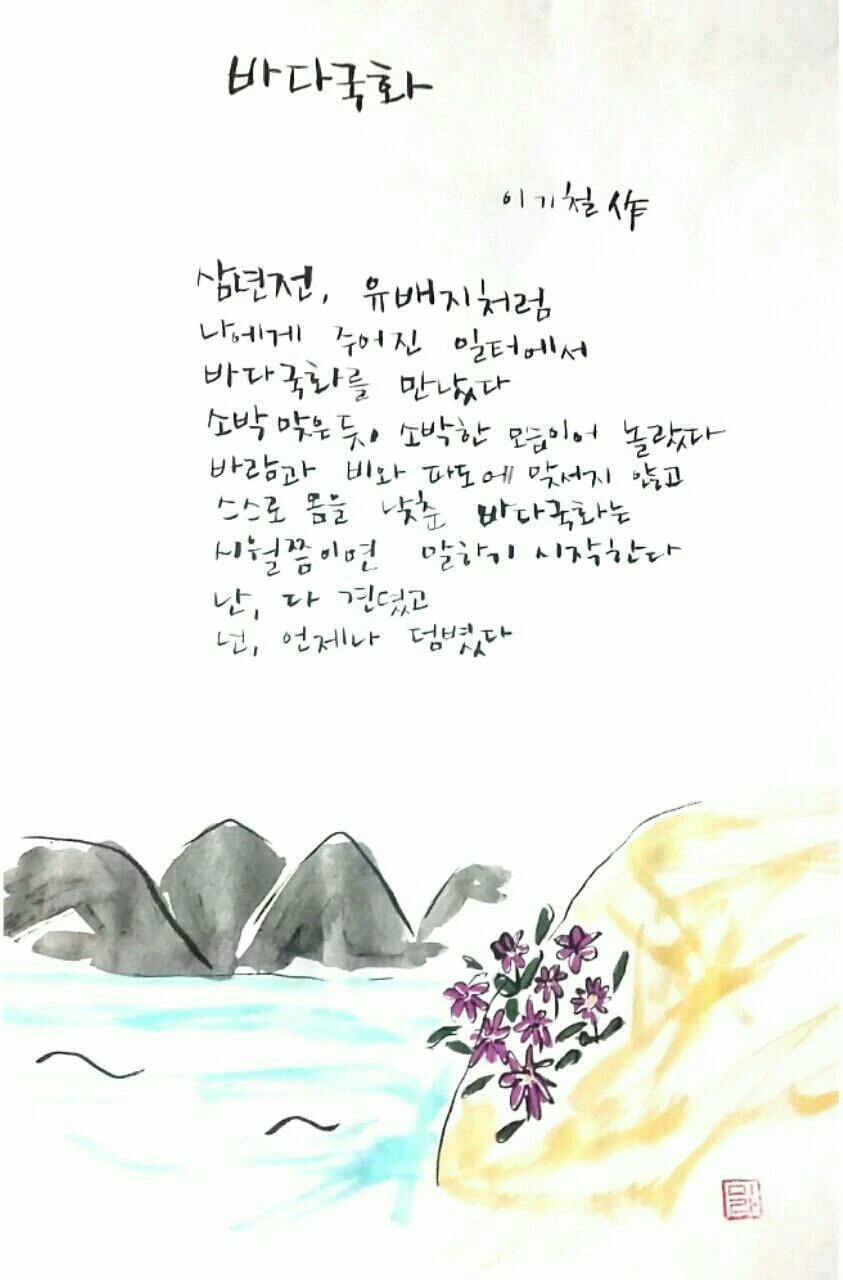 바다국화
이기철 作
삼년전, 유배지처럼
나에게 주어진 일터에서
바다국화를 만났다
소박맞은듯, 소박한 모습이어 놀랐다
바람과 비와 파도에 맞서지 않고
스스로 몸을 낮춘 바다국화는
시월쯤이면 말하기 시작한다
난, 다 견뎠고
넌, 언제나 덤볐다